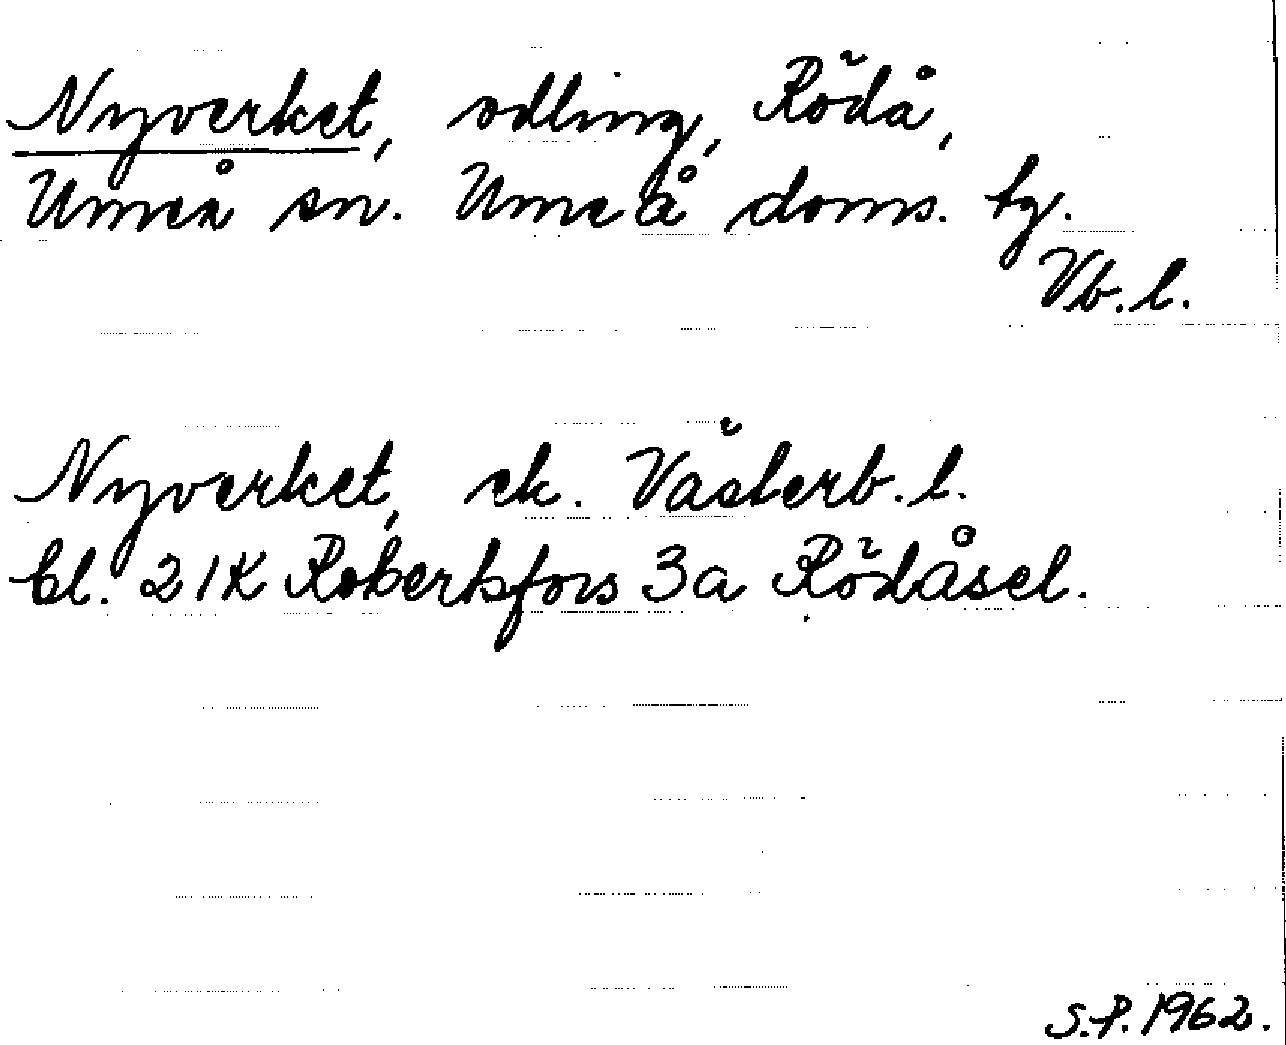 Nyverket, odling, Rödå,
Umeå sn. Umeå doms. tg.
Vb.l.
Nyverket, ek. Västerb.l.
bl. 21K Robertsfors 3a Rödåsel.
S.P. 1962.